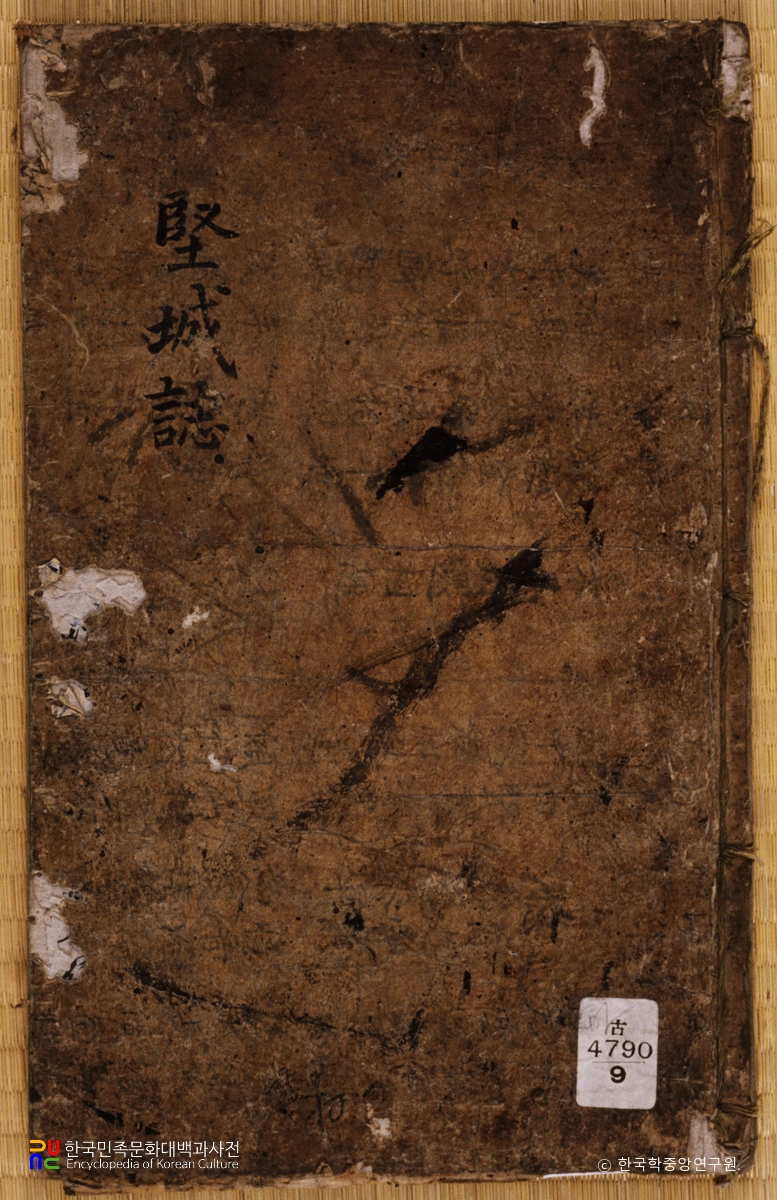 堅城誌
古
4790
9
한국민족문화대백과사전
Encyclopedia of Korean Culture
© 한국학중앙연구원